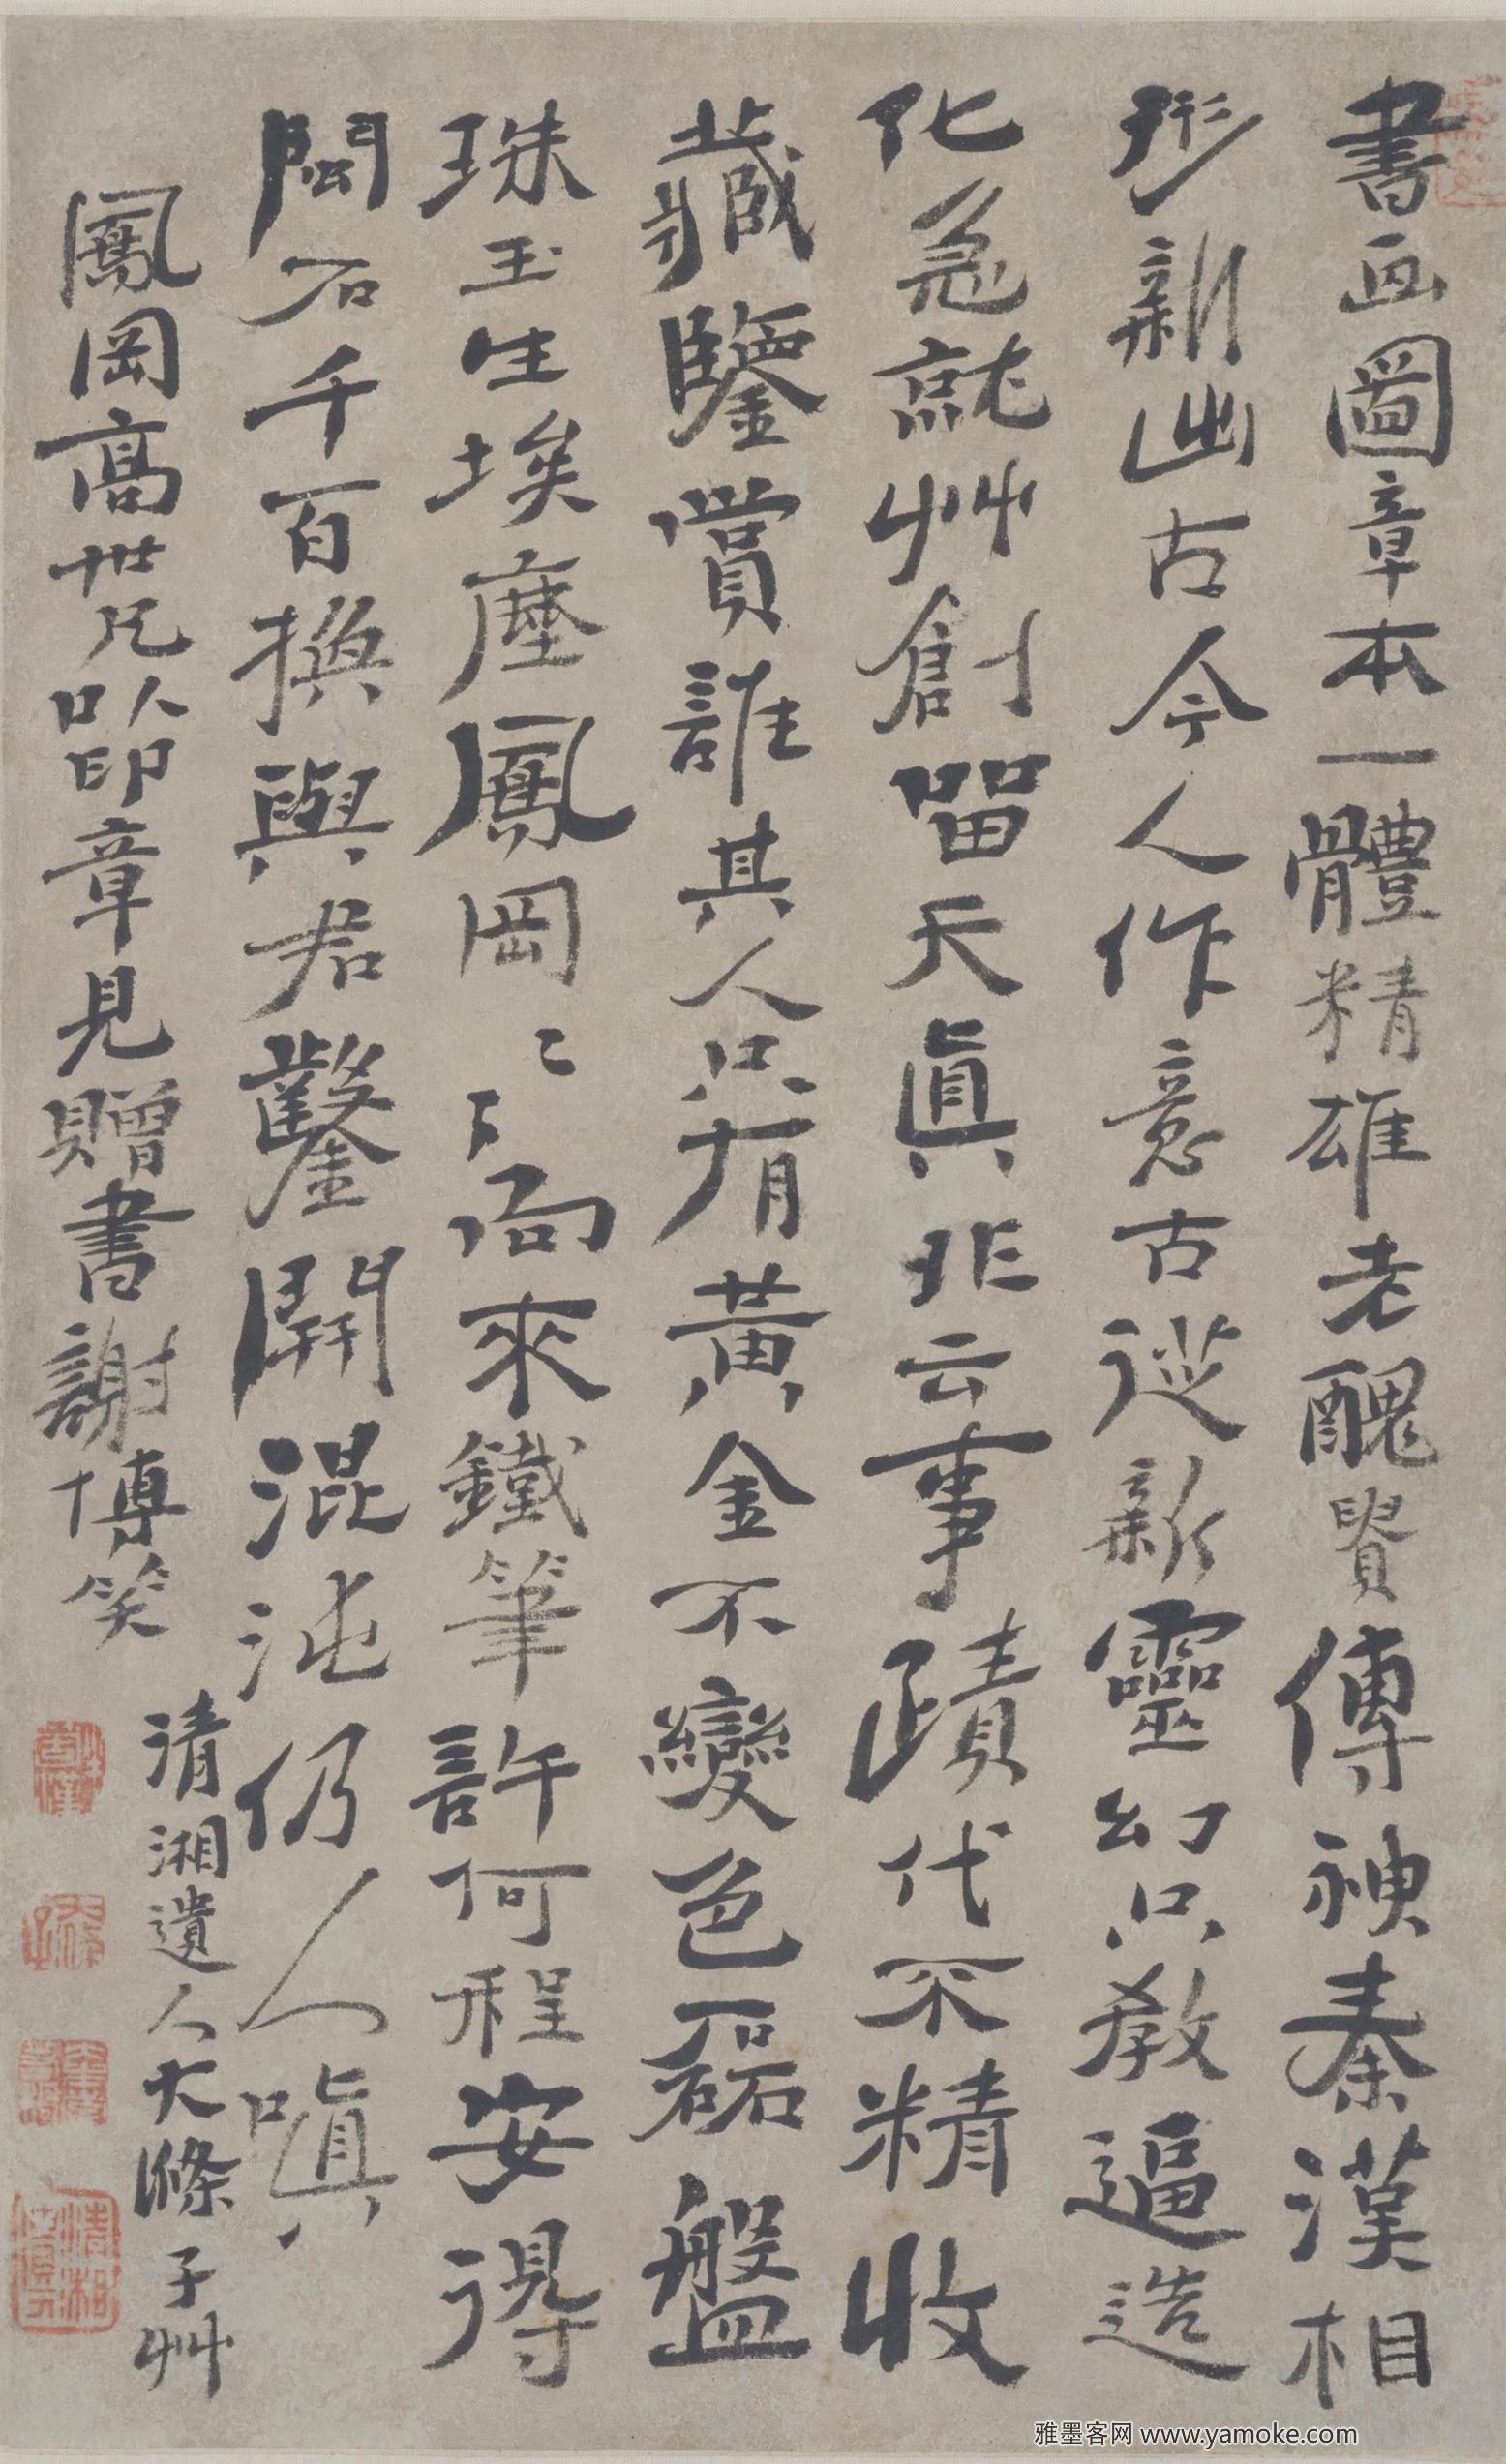 書画圖章本一體精雄老醜貴傳神秦漢相
形新出古今人作意古從新靈幻只教逼造
化急就艸創留天真非云事蹟代不精收
藏鑒賞誰其人只有黃金不變色磊盤
珠玉生埃塵鳳岡鳳岡下向來鐵筆許何程安得
閎石千百換與君鑿開混沌仍人嗔
鳳岡高世兄以印章見贈書謝博笑
清湘遺人大滌子艸
清湘
雅墨客网 www.yamoke.com